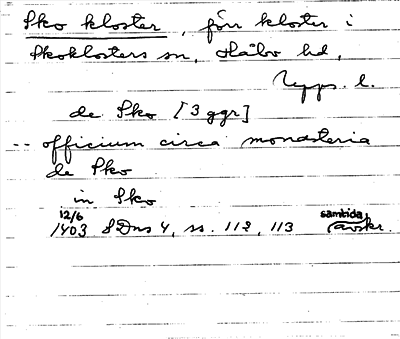 Sko kloster, förr kloster i
Skoklosters sn, Håbo hd,
Upps. l.
de Sko [3 ggr]
-- officium circa monasteria
de Sko
in Sko
12/6 1403 SDns 4, ss. 112, 113 samtida avskr.